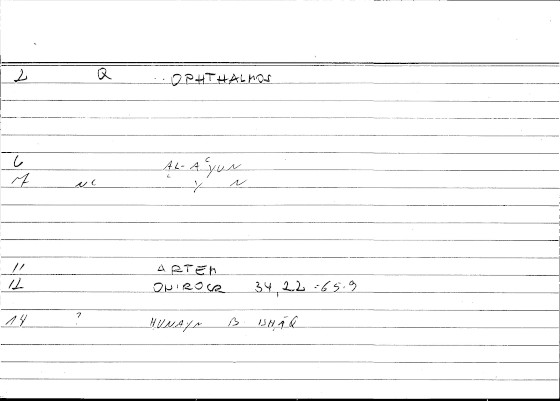 2 Q .. OPHTHALMOS
6 AL-AʿYUN
7 NC ʿ Y N
11 ARTEM
12 ONIROCR 34,22-65.9
14 ? HUNAYN B ISHĀQ